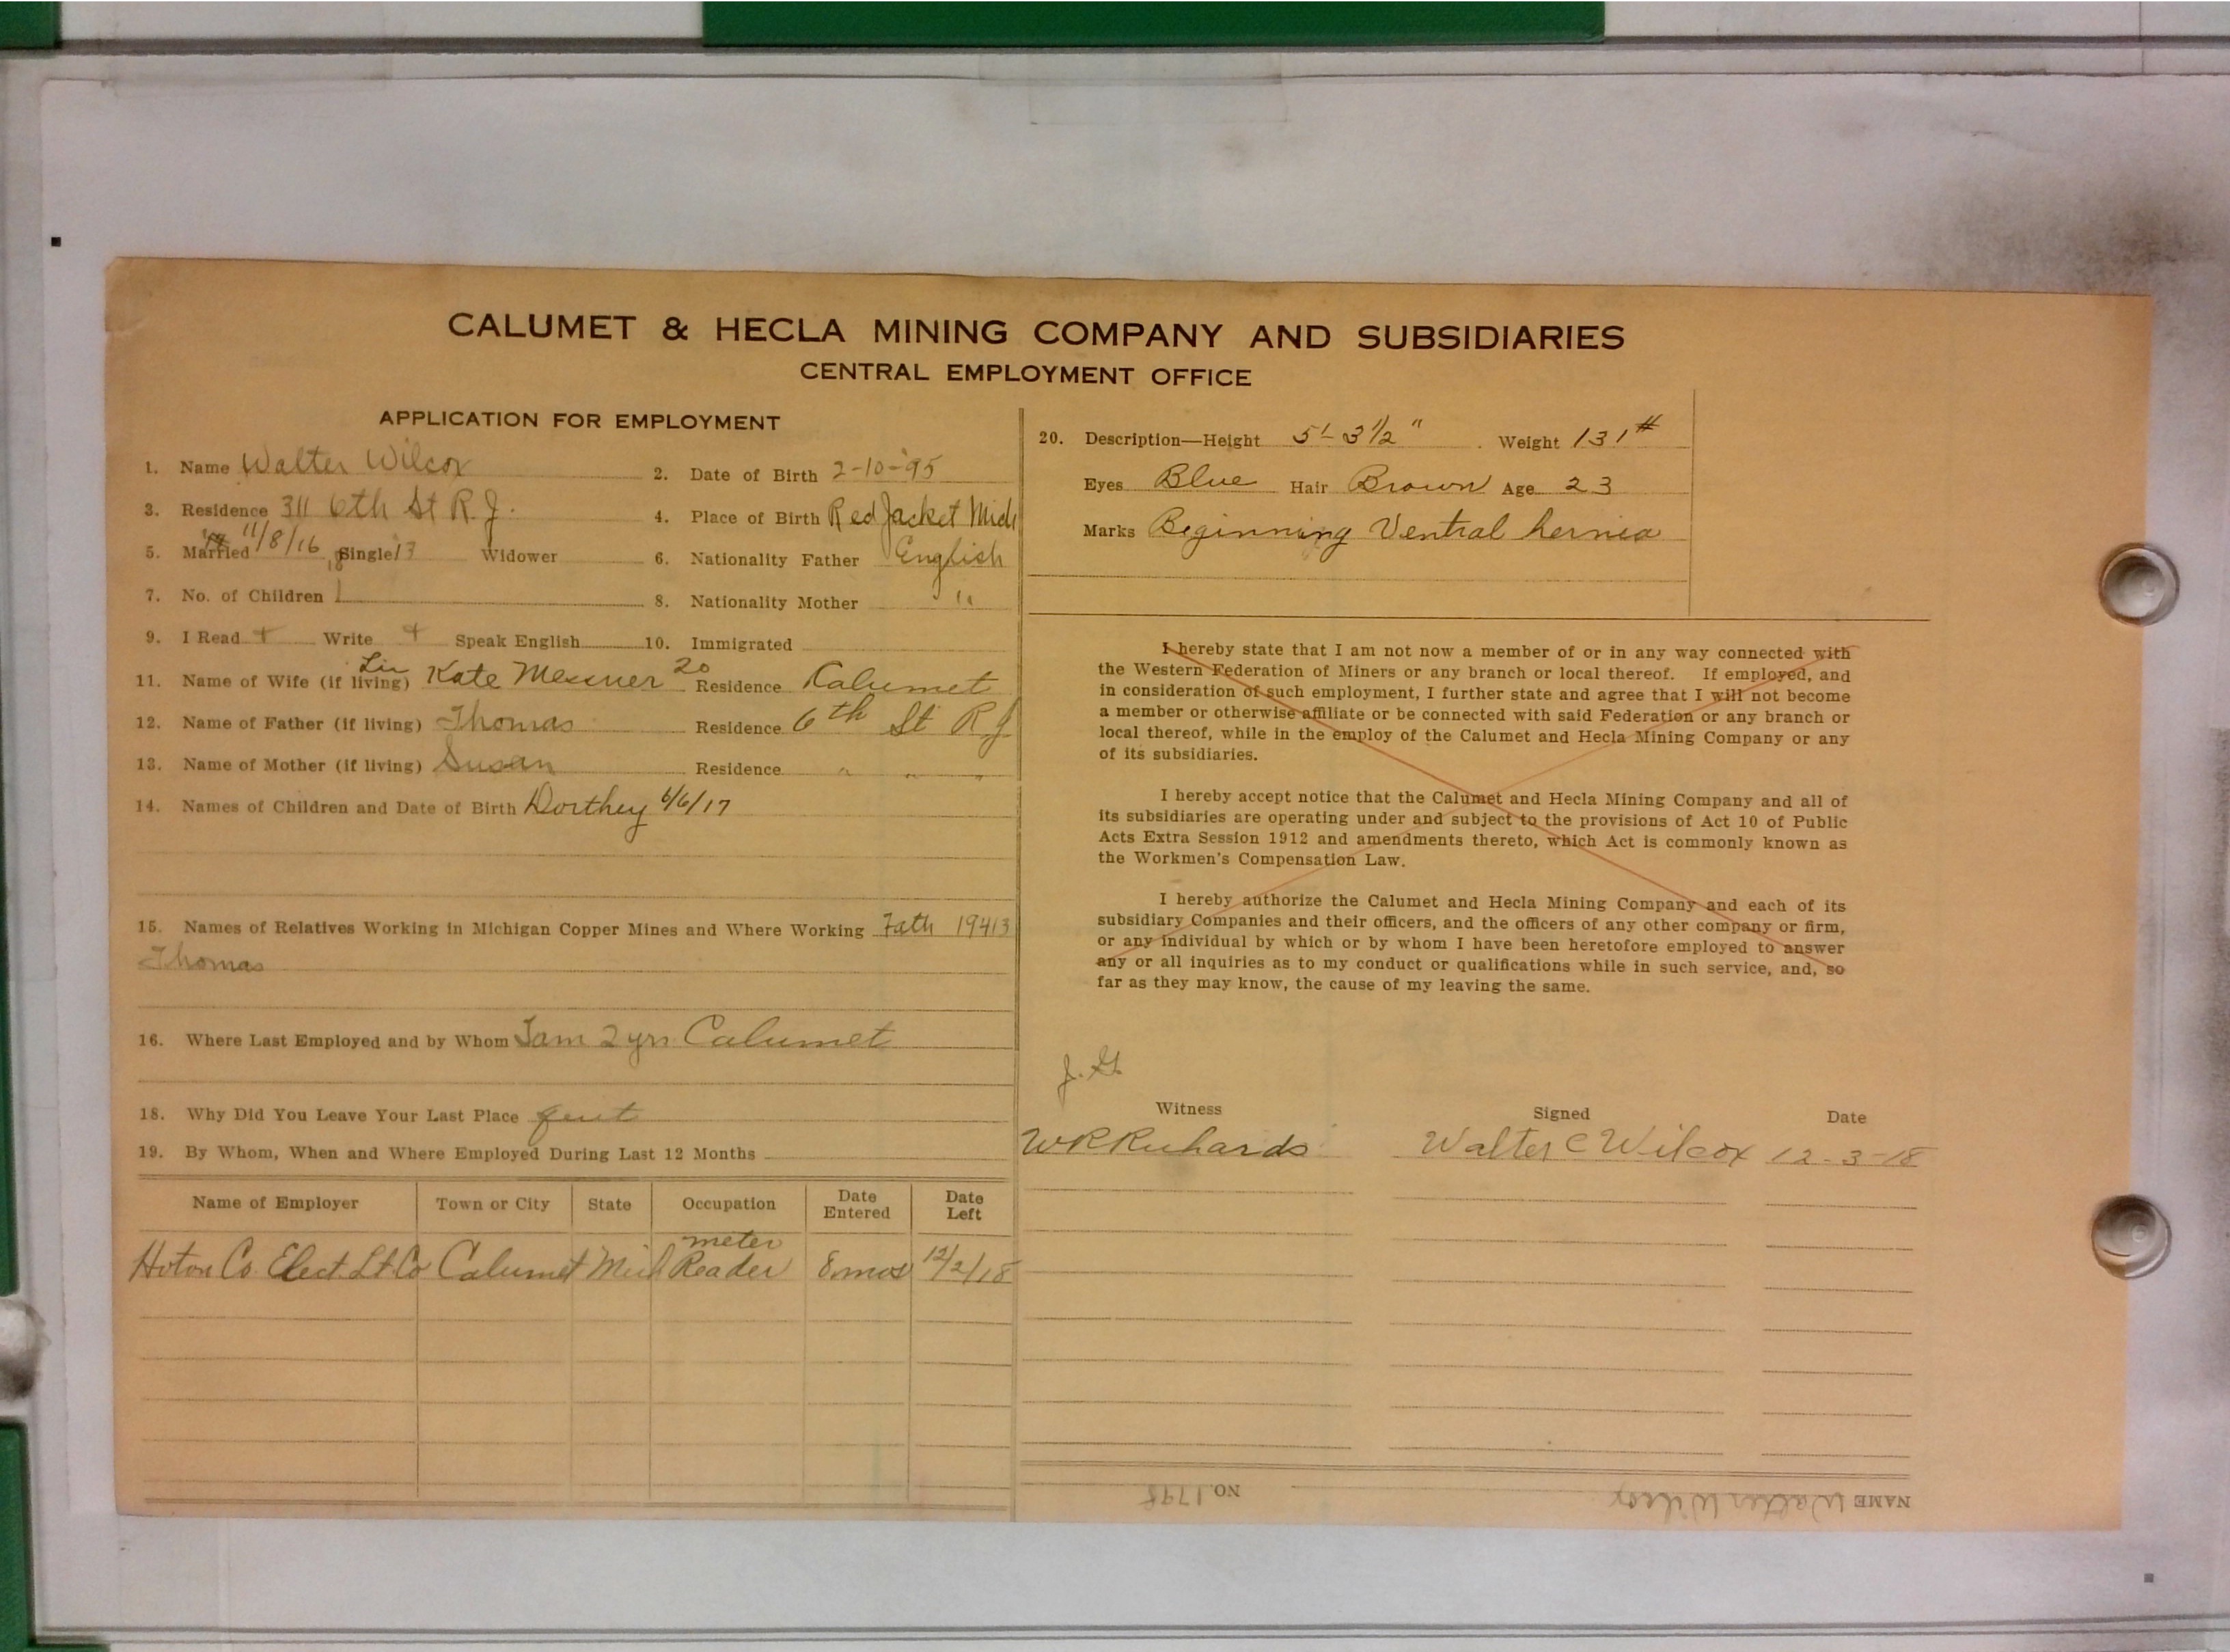 CALUMET & HECLA MINING COMPANY AND SUBSIDIARIES
CENTRAL EMPLOYMENT OFFICE
APPLICATION FOR EMPLOYMENT
1. Name Walter Wilcox 2. Date of Birth 2-10-95
3. Residence 311 6th St R.J. 4. Place of Birth Red Jacket Mich
5. Married 11/8/16 Single 13 Widower 6. Nationality Father English
7. No. of Children 1 8. Nationality Mother "
9. I Read + Write + Speak English 10. Immigrated
11. Name of Wife (if living) Liv Kate Messner 20 Residence Calumet
12. Name of Father (if living) Thomas Residence 6th St R.J
13. Name of Mother (if living) Susan Residence " " "
14. Names of Children and Date of Birth Dorthey 6/6/17
15. Names of Relatives Working in Michigan Copper Mines and Where Working Fath 19413
Thomas
16. Where Last Employed and by Whom Tam 2 yrs Calumet
18. Why Did You Leave Your Last Place quit
19. By Whom, When and Where Employed During Last 12 Months
Name of Employer Town or City State Occupation Date Entered Date Left
Hoton Co. Elect. Lt. Co Calumet Mich meter Reader 8 mos 12/2/18
20. Description—Height 5'-3 1/2" Weight 131#
Eyes Blue Hair Brown Age 23
Marks Beginning Ventral hernia
I hereby state that I am not now a member of or in any way connected with
the Western Federation of Miners or any branch or local thereof. If employed, and
in consideration of such employment, I further state and agree that I will not become
a member or otherwise affiliate or be connected with said Federation or any branch or
local thereof, while in the employ of the Calumet and Hecla Mining Company or any
of its subsidiaries.
I hereby accept notice that the Calumet and Hecla Mining Company and all of
its subsidiaries are operating under and subject to the provisions of Act 10 of Public
Acts Extra Session 1912 and amendments thereto, which Act is commonly known as
the Workmen's Compensation Law.
I hereby authorize the Calumet and Hecla Mining Company and each of its
subsidiary Companies and their officers, and the officers of any other company or firm,
or any individual by which or by whom I have been heretofore employed to answer
any or all inquiries as to my conduct or qualifications while in such service, and, so
far as they may know, the cause of my leaving the same.
Witness Signed Date
WR Richards Walter C Wilcox 12-3-18
NAME Walter Wilcox NO. 1798